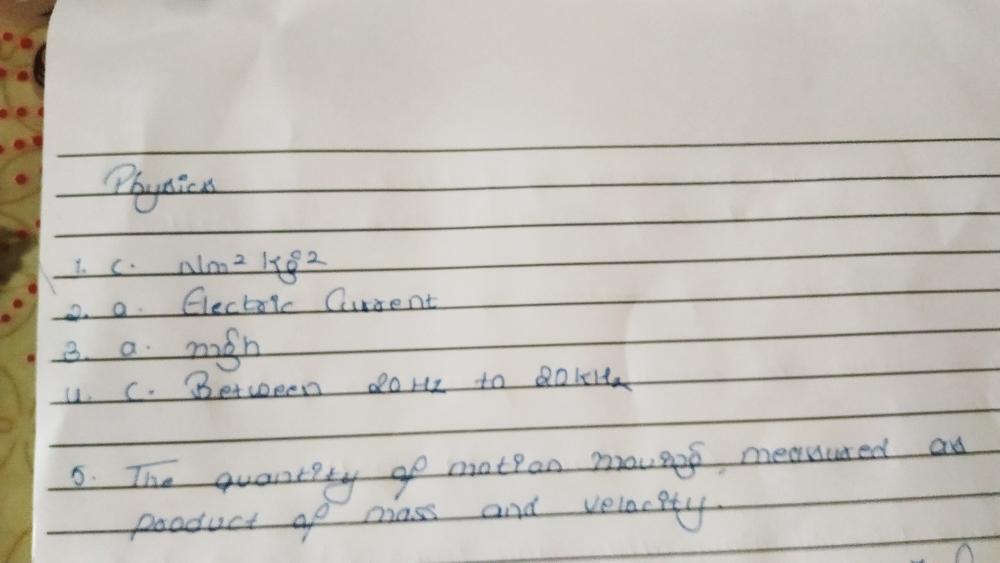 Physics
1. c. Nm² kg²
2. a. Electric Current
3. a. mgh
4. c. Between 20 Hz to 20 KHz
5. The quantity of motion moving, measured as
product of mass and velocity.